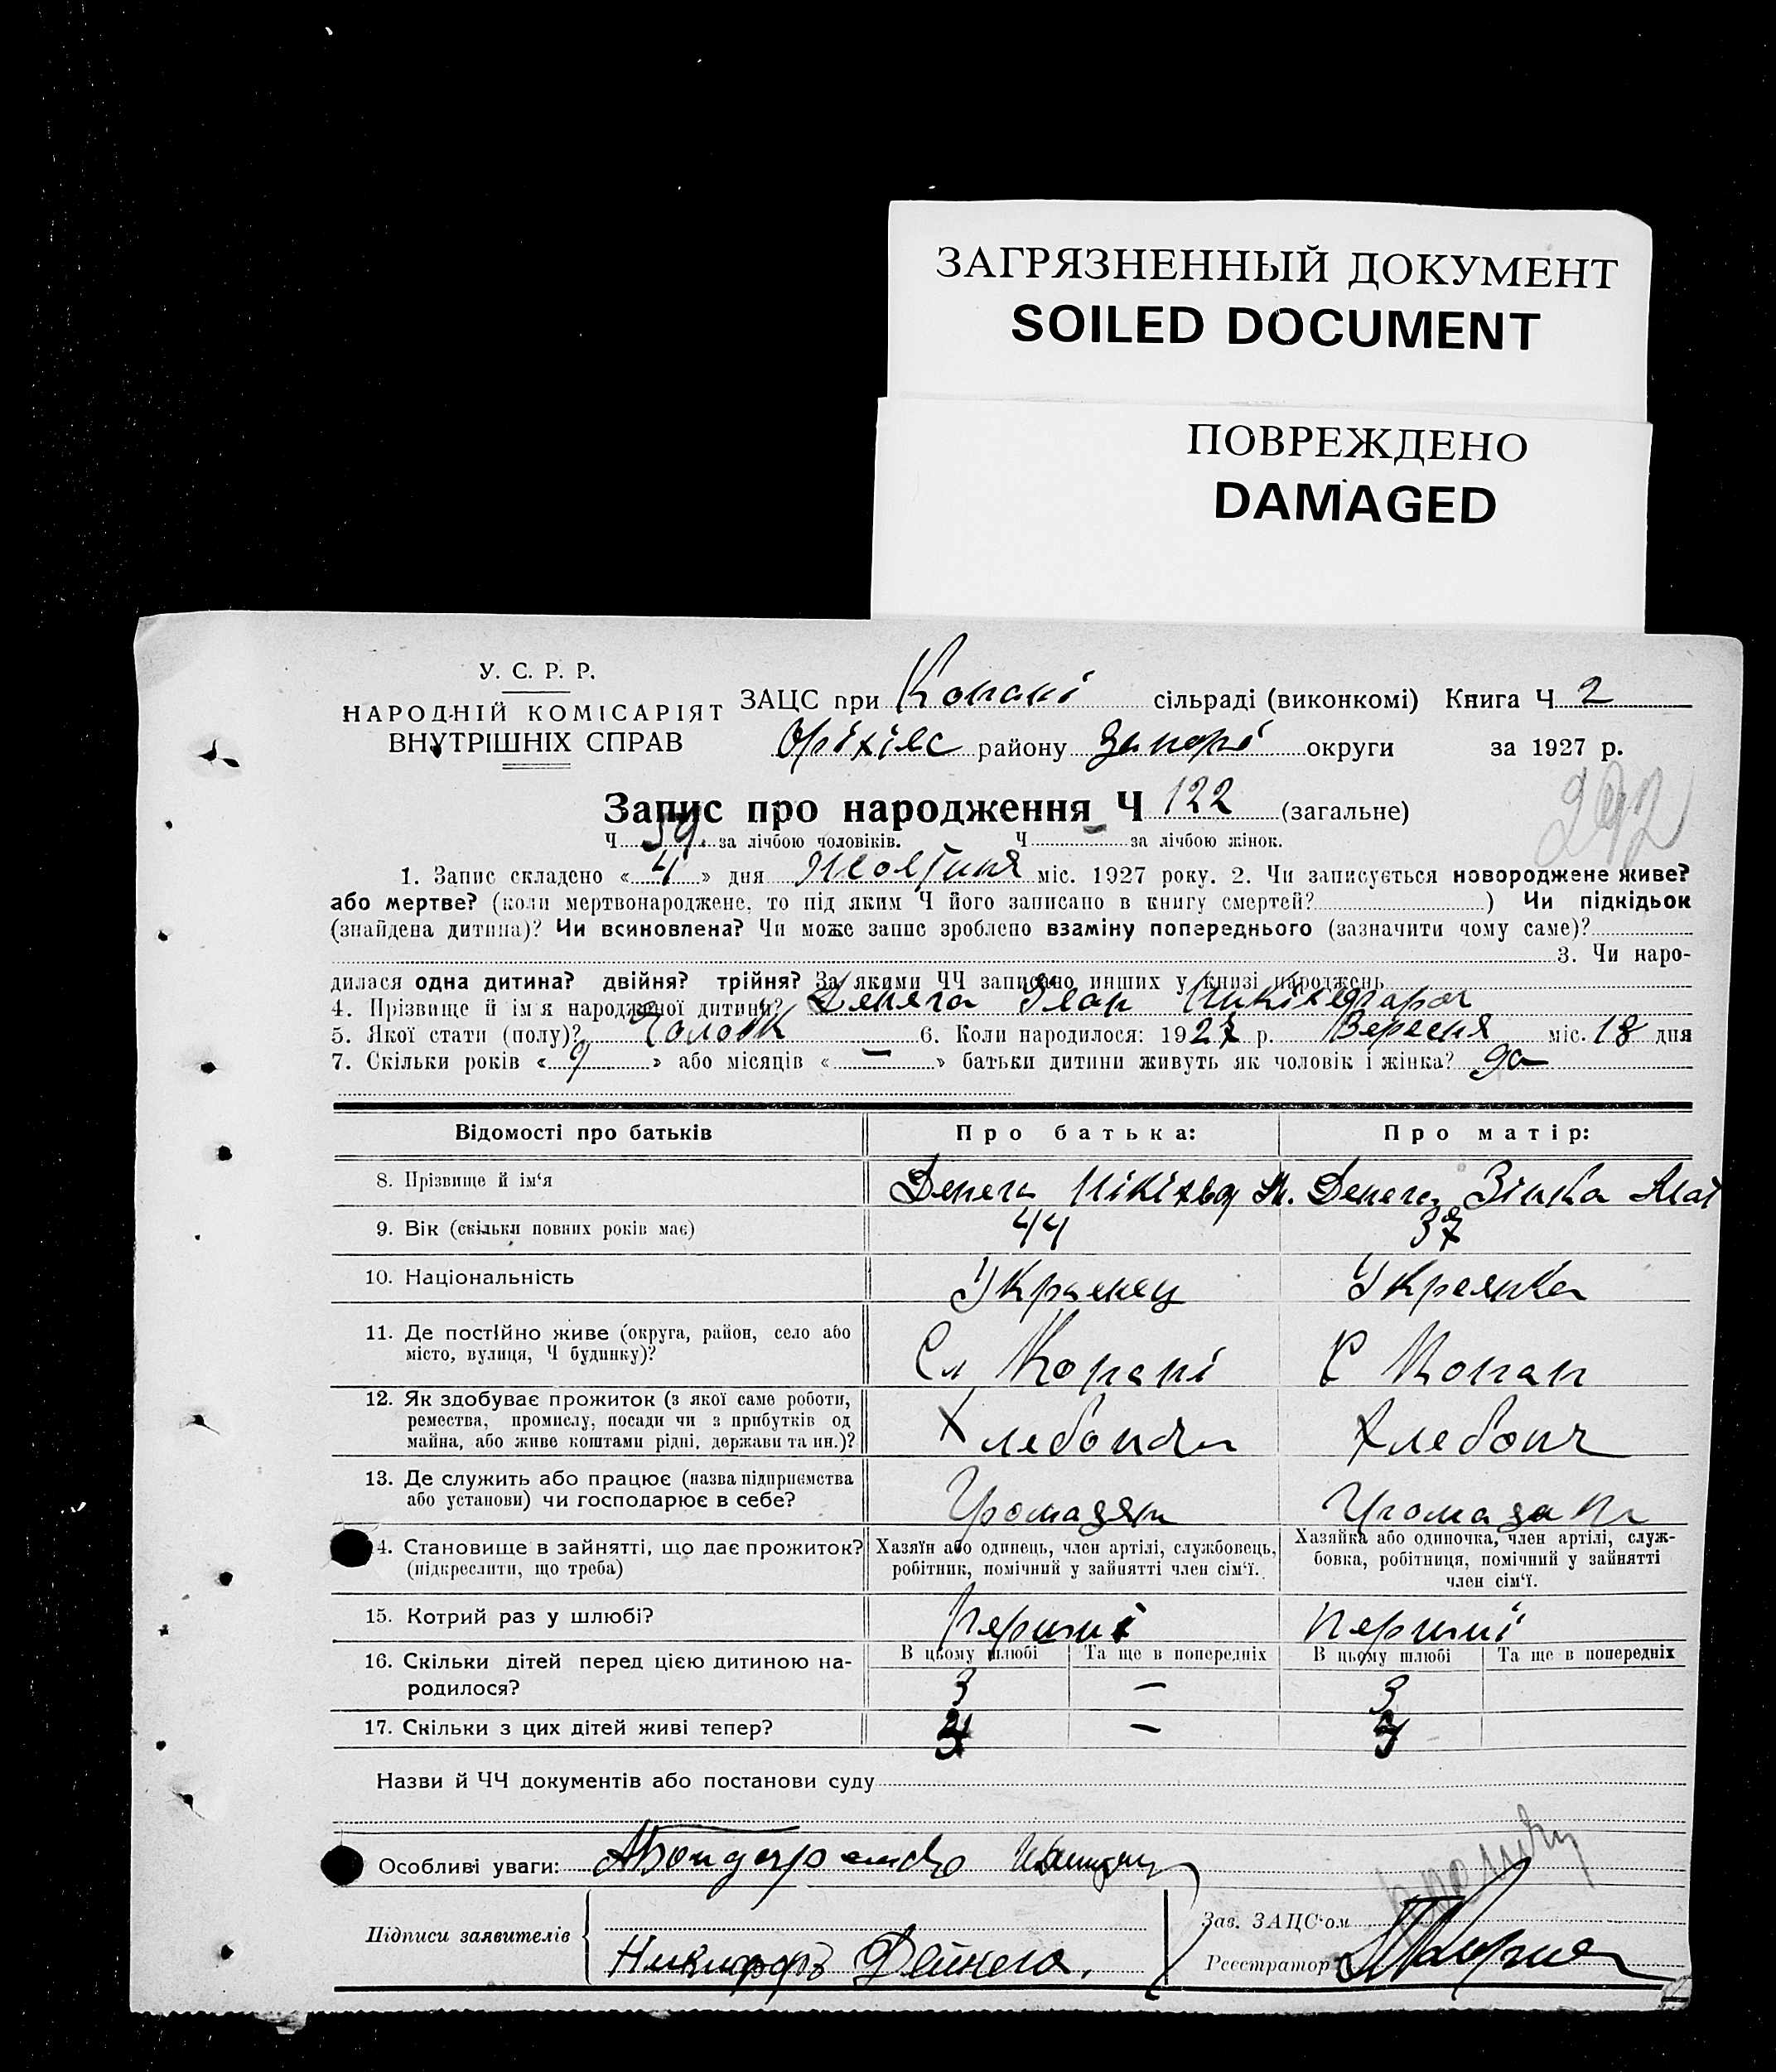 ЗАГРЯЗНЕННЫЙ ДОКУМЕНТ
SOILED DOCUMENT
ПОВРЕЖДЕНО
DAMAGED
У. С. Р. Р.
НАРОДНІЙ КОМІСАРІЯТ
ВНУТРІШНІХ СПРАВ
ЗАЦС при Копані сільраді (виконкомі) Книга Ч 2
Оріхівс району Запорі округи за 1927 р.
Запис про народження Ч 122 (загальне)
Ч 59 за лічбою чоловіків. Ч — за лічбою жінок.
1. Запис складено « 4 » дня Жовтня міс. 1927 року. 2. Чи записується новороджене живе?
або мертве? (коли мертвонароджене, то під яким Ч його записано в книгу смертей? ) Чи підкідьок
(знайдена дитина)? Чи всиновлена? Чи може запис зроблено взаміну попереднього (зазначити чому саме)?
3. Чи наро-
дилася одна дитина? двійня? трійня? За якими ЧЧ записано инших у книзі народжень
4. Прізвище й ім'я народженої дитини? Денега Іван
5. Якої стати (полу)? Чоловік 6. Коли народилося: 1927 р. Вересня міс. 18 дня
7. Скільки років « 9 » або місяців « — » батьки дитини живуть як чоловік і жінка? да
Відомості про батьків Про батька: Про матір:
8. Прізвище й ім'я Денега Нікіхвд Денега Зінька Мат
9. Вік (скільки повних років має) 44 37
10. Національність Украенец Укреянка
11. Де постійно живе (округа, район, село або Сл Копані С Копан
місто, вулиця, Ч будинку)?
12. Як здобуває прожиток (з якої саме роботи,
ремества, промислу, посади чи з прибутків од
майна, або живе коштами рідні, держави та ин.)? Хлебопч Хлебопч
13. Де служить або працює (назва підприємства
або установи) чи господарює в себе? Громадян Громадан
4. Становище в зайнятті, що дає прожиток? Хазяїн або одинець, член артілі, службовець, Хазяйка або одиночка, член артілі, служ-
(підкреслити, що треба) робітник, помічний у зайнятті член сім'ї. бовка, робітниця, помічний у зайнятті
член сім'ї.
15. Котрий раз у шлюбі? Перший Перший
В цьому шлюбі Та ще в попередніх В цьому шлюбі Та ще в попередніх
16. Скільки дітей перед цією дитиною на-
родилося? 3 — 3
17. Скільки з цих дітей живі тепер? 3 — 3
Назви й ЧЧ документів або постанови суду
Особливі уваги:
Підписи заявителів Никифоръ Дейнега.
Зав. ЗАЦС'ом
Реєстратор